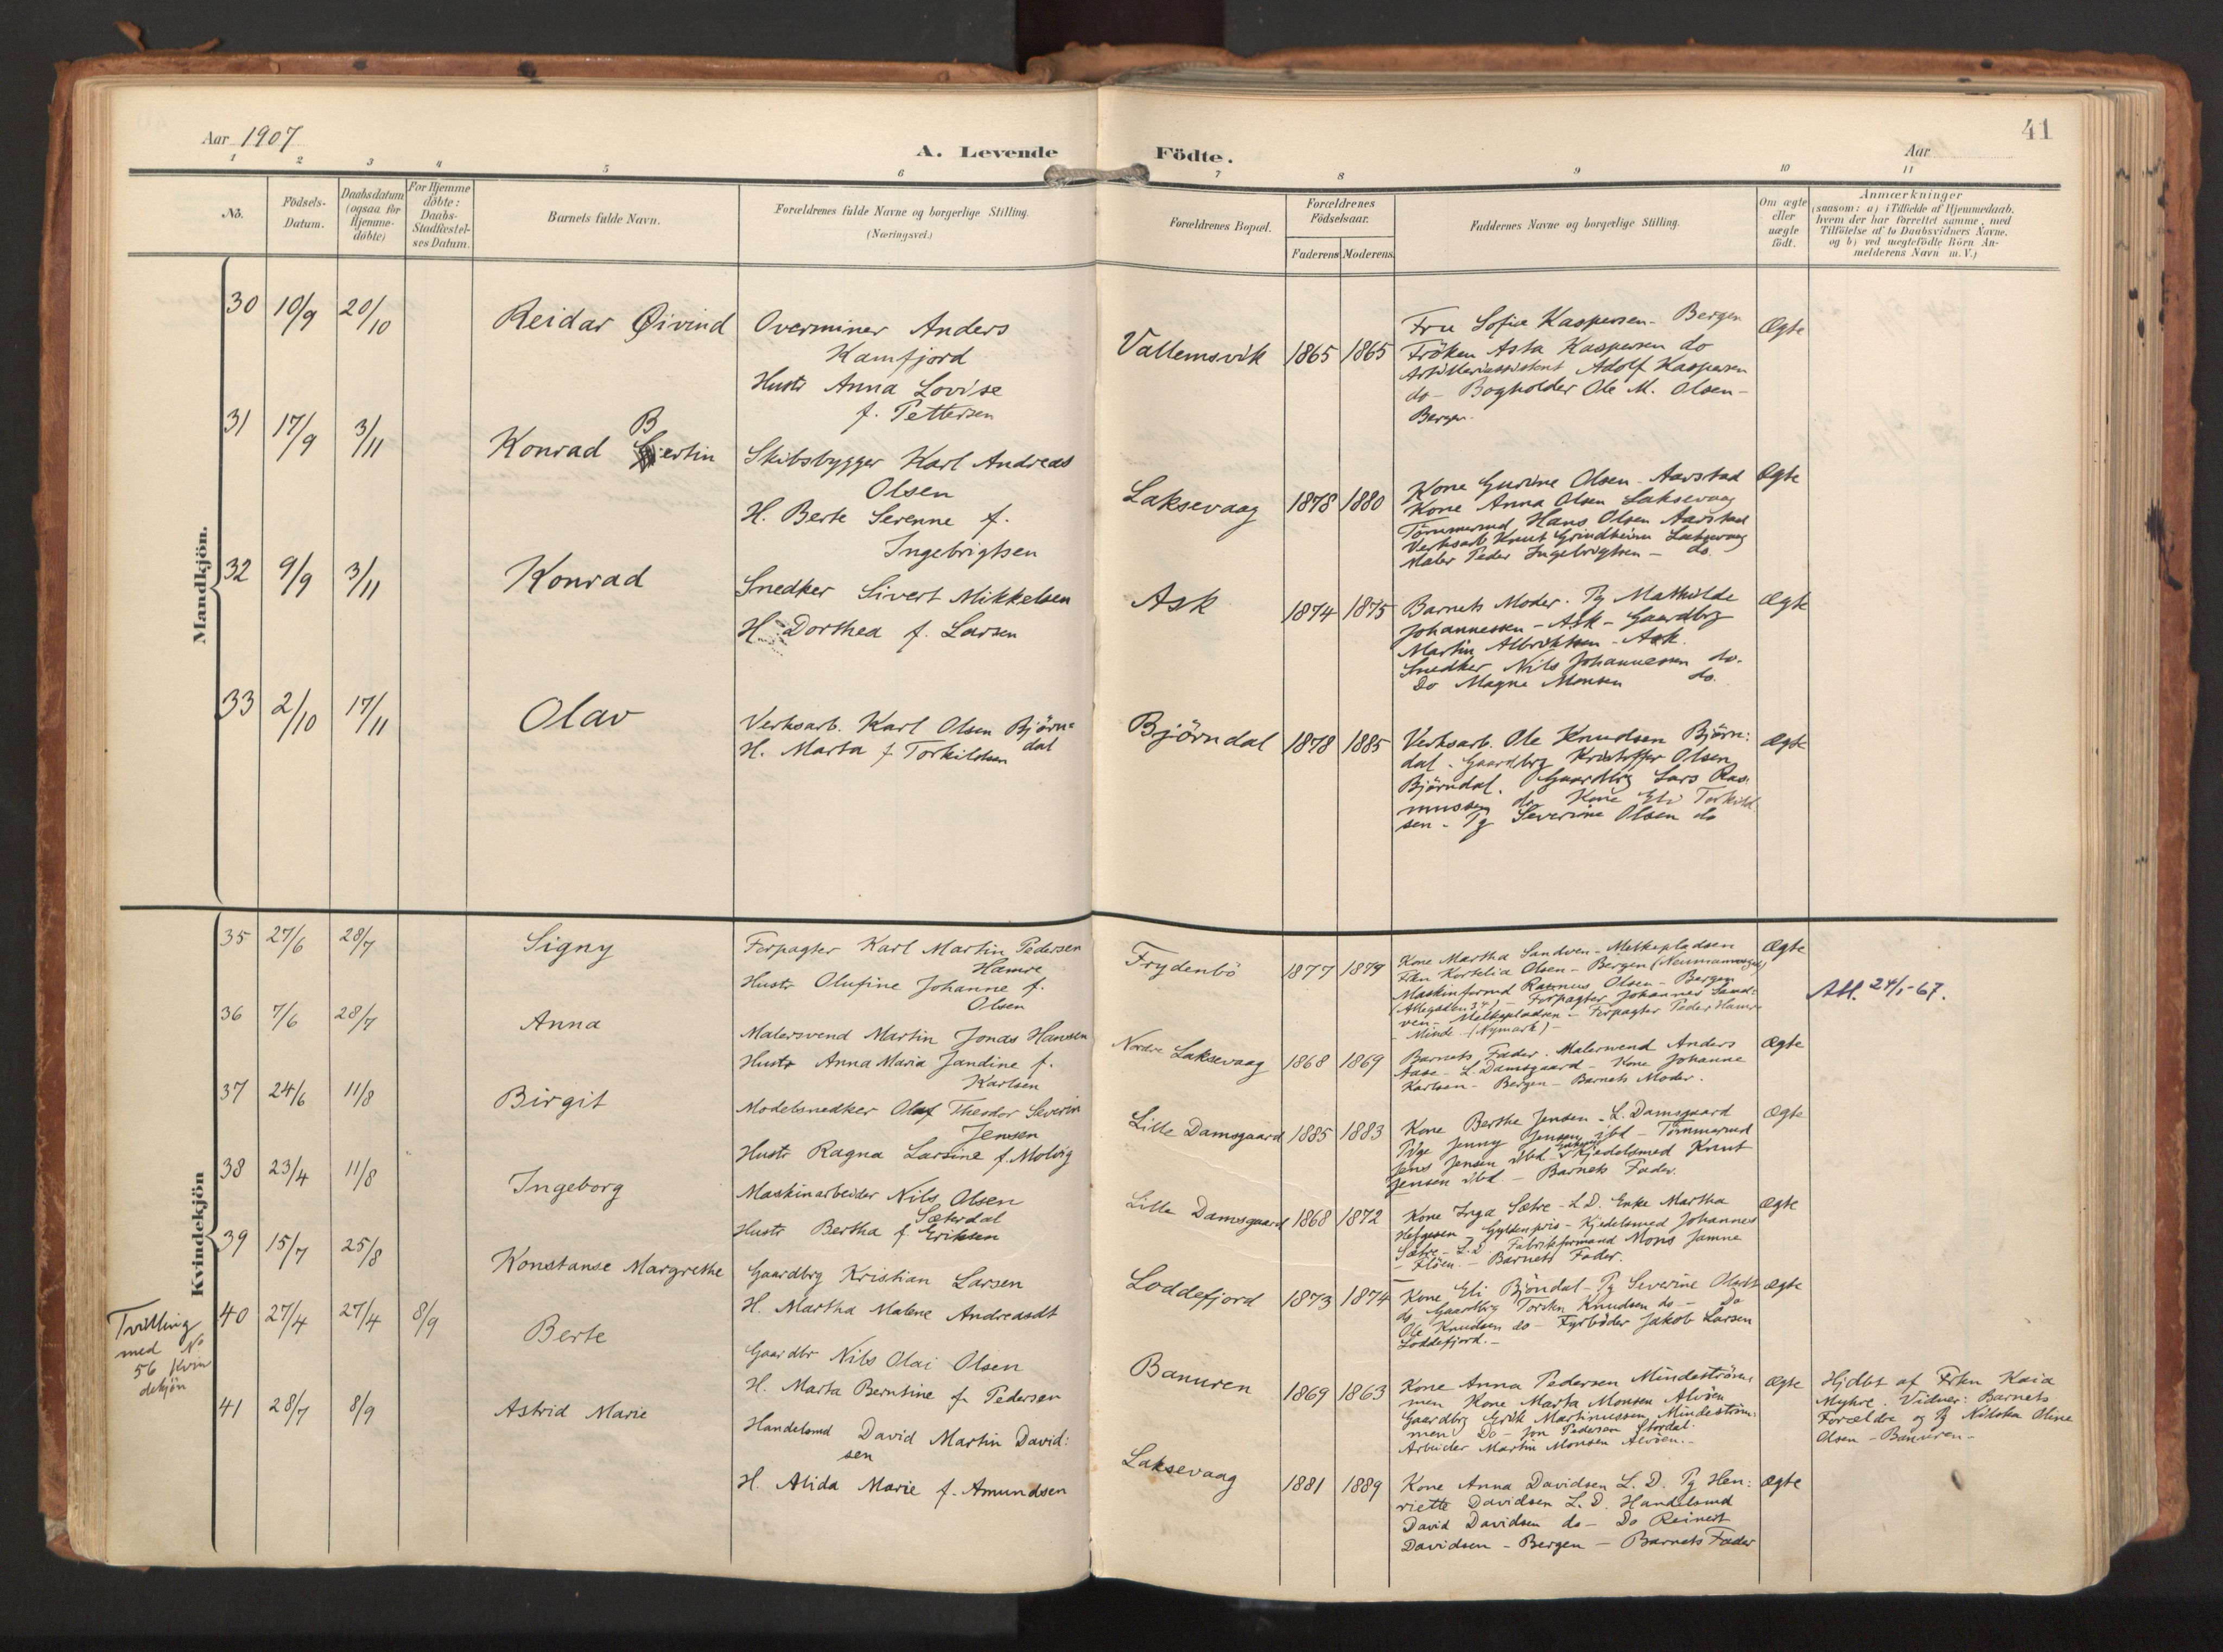 Aar 1907
A. Levende
Födte.
Aar
41
1 2 3 4 5 6 7 8 9 10 11
No.
Födsels-
Datum.
Daabsdatum
(ogsaa for
Hjemme-
döbte)
For Hjemme
döbte:
Daabs-
Stadfæstel-
ses Datum.
Barnets fulde Navn.
Forældrenes fulde Navne og borgerlige Stilling.
(Næringsvei.)
Forældrenes Bopæl.
Forældrenes
Födselsaar.
Faderens Moderens
Faddernes Navne og borgerlige Stilling.
Om ægte
eller
uægte
födt.
Anmærkninger
(saasom: a) i Tilfælde af Hjemmedaab.
hvem der har forrettet samme, med
Tilföielse af to Daabsvidners Navne.
og b) ved uægtefödte Börn An-
melderens Navn m.V.)
Mandkjön.
30 10/9 20/10 Reidar Øivind
Overminer Anders
Kamfjord
Hustr Anna Lovise
f. Pettersen
Vallemsvik 1865 1865
Fru Sofie Kaspersen - Bergen
Fröken Asta Kaspersen do
Artilleriassistent Adolf Kaspersen
do - Bogholder Ole M. Olsen -
Bergen.
Ægte
31 17/9 3/11 Konrad Bertin
Skibsbygger Karl Andreas
Olsen
H. Berte Serenne f.
Ingebrigtsen
Laksevaag 1878 1880
Kone Gurine Olsen - Aarstad
Kone Anna Olsen Laksevaag
Tömmermd Hans Olsen Aarstad
Verksarb Knut Grindheim Laksevaag
Maler Peder Ingebrigtsen - do.
Ægte
32 9/9 3/11 Konrad
Snedker Sivert Mikkelsen
H. Dorthea f. Larsen
Ask 1874 1875
Barnets Moder. Pg Mathilde
Johannessen - Ask - Gaardbrg
Martin Albriktsen - Ask.
Snedker Nils Johannessen do.
Do Magne Monsen do.
Ægte
33 2/10 17/11 Olav
Verksarb. Karl Olsen Björn=
dal
H. Marta f. Torkildsen
Björndal 1878 1885
Verksarb. Ole Knudsen Björn:
dal - Gaardbrg Kristoffer Olsen
Björndal. Gaardbrg Lars Ras:
mussen do Kone Eli Torkild
sen - Pg Severine Olsen do
Ægte
Kvindekjön
35 27/6 28/7 Signy
Forpagter Karl Martin Pedersen
Hamre
Hustr Olufine Johanne f.
Olsen
Frydenbö 1877 1879
Kone Martha Sandven - Melkepladsen
Frkn Kornelia Olsen - Bergen
Maskinformd Rasmus Olsen - Bergen
(Allegaden 34) - Forpagter Johannes Sand:
ven - Melkepladsen - Forpagter Peder Hamre
- Minde (Nymark) -
Ægte
Att. 24/1-67.
36 7/6 28/7 Anna
Malersvend Martin Jonas Hansen
Hustr Anna Maria Jandine f.
Karlsen
Nordre Laksevaag 1868 1869
Barnets Fader. Malersvend Anders
Aase - L. Damsgaard - Kone Johanne
Karlsen - Bergen - Barnets Moder.
Ægte
37 24/6 11/8 Birgit
Modelsnedker Olaf Theodor Severin
Jensen
Hustr Ragna Larsine f. Molvig
Lille Damsgaard 1885 1883
Kone Berthe Jensen - L. Damsgaard
Pige Jenny Jensen ibd - Tömmermd
Jens Jensen ibd - Kjedelsmed Knut
Jensen ibd. - Barnets Fader.
Ægte
38 23/4 11/8 Ingeborg
Maskinarbeider Nils Olsen
Sæterdal
Hustr Bertha f. Eriksen
Lille Damsgaard 1868 1872
Kone Inga Sætre - L.D. Enke Martha
Helgesen Gyldenpris - Kjedelsmed Johannes
Sætre - L.D. Fabrikformand Mons Jamne
- Flöen. - Barnets Fader.
Ægte
39 15/7 25/8 Konstanse Margrethe
Gaardbrg Kristian Larsen
H. Martha Malene Andreasdt
Loddefjord 1873 1874
Kone Eli Björndal - Pg Severine Olsdt
do Gaardbrg Torstn Knudsen do - Do
Ole Knudsen do - Fyrböder Jakob Larsen
Loddefjord. -
Ægte
Tvilling
med No
56 Kvin
dekjön
40 27/4 27/4 8/9 Berte
Gaardbr Nils Olai Olsen
H. Marta Berntine f. Pedersen
Banuren 1869 1863
Kone Anna Pedersen Mindeström:
men Kone Marta Monsen Alvöen
Gaardbrg Erik Martinussen Mindeström:
men Do - Jon Pedersen Stordal.
Arbeider Martin Monsen Alvöen. -
Ægte
Hjdbt af Frkn Kaia
Myhre. Vidner: Barnets
Forældre og Pg Nilska Oline
Olsen - Banuren -
41 28/7 8/9 Astrid Marie
Handelsmd David Martin David:
sen
H. Alida Marie f. Amundsen
Laksevaag 1881 1889
Kone Anna Davidsen L. D. Pg Hen:
riette Davidsen L. D. Handelsmd
David Davidsen do - Do Reinert
Davidsen - Bergen - Barnets Fader
Ægte